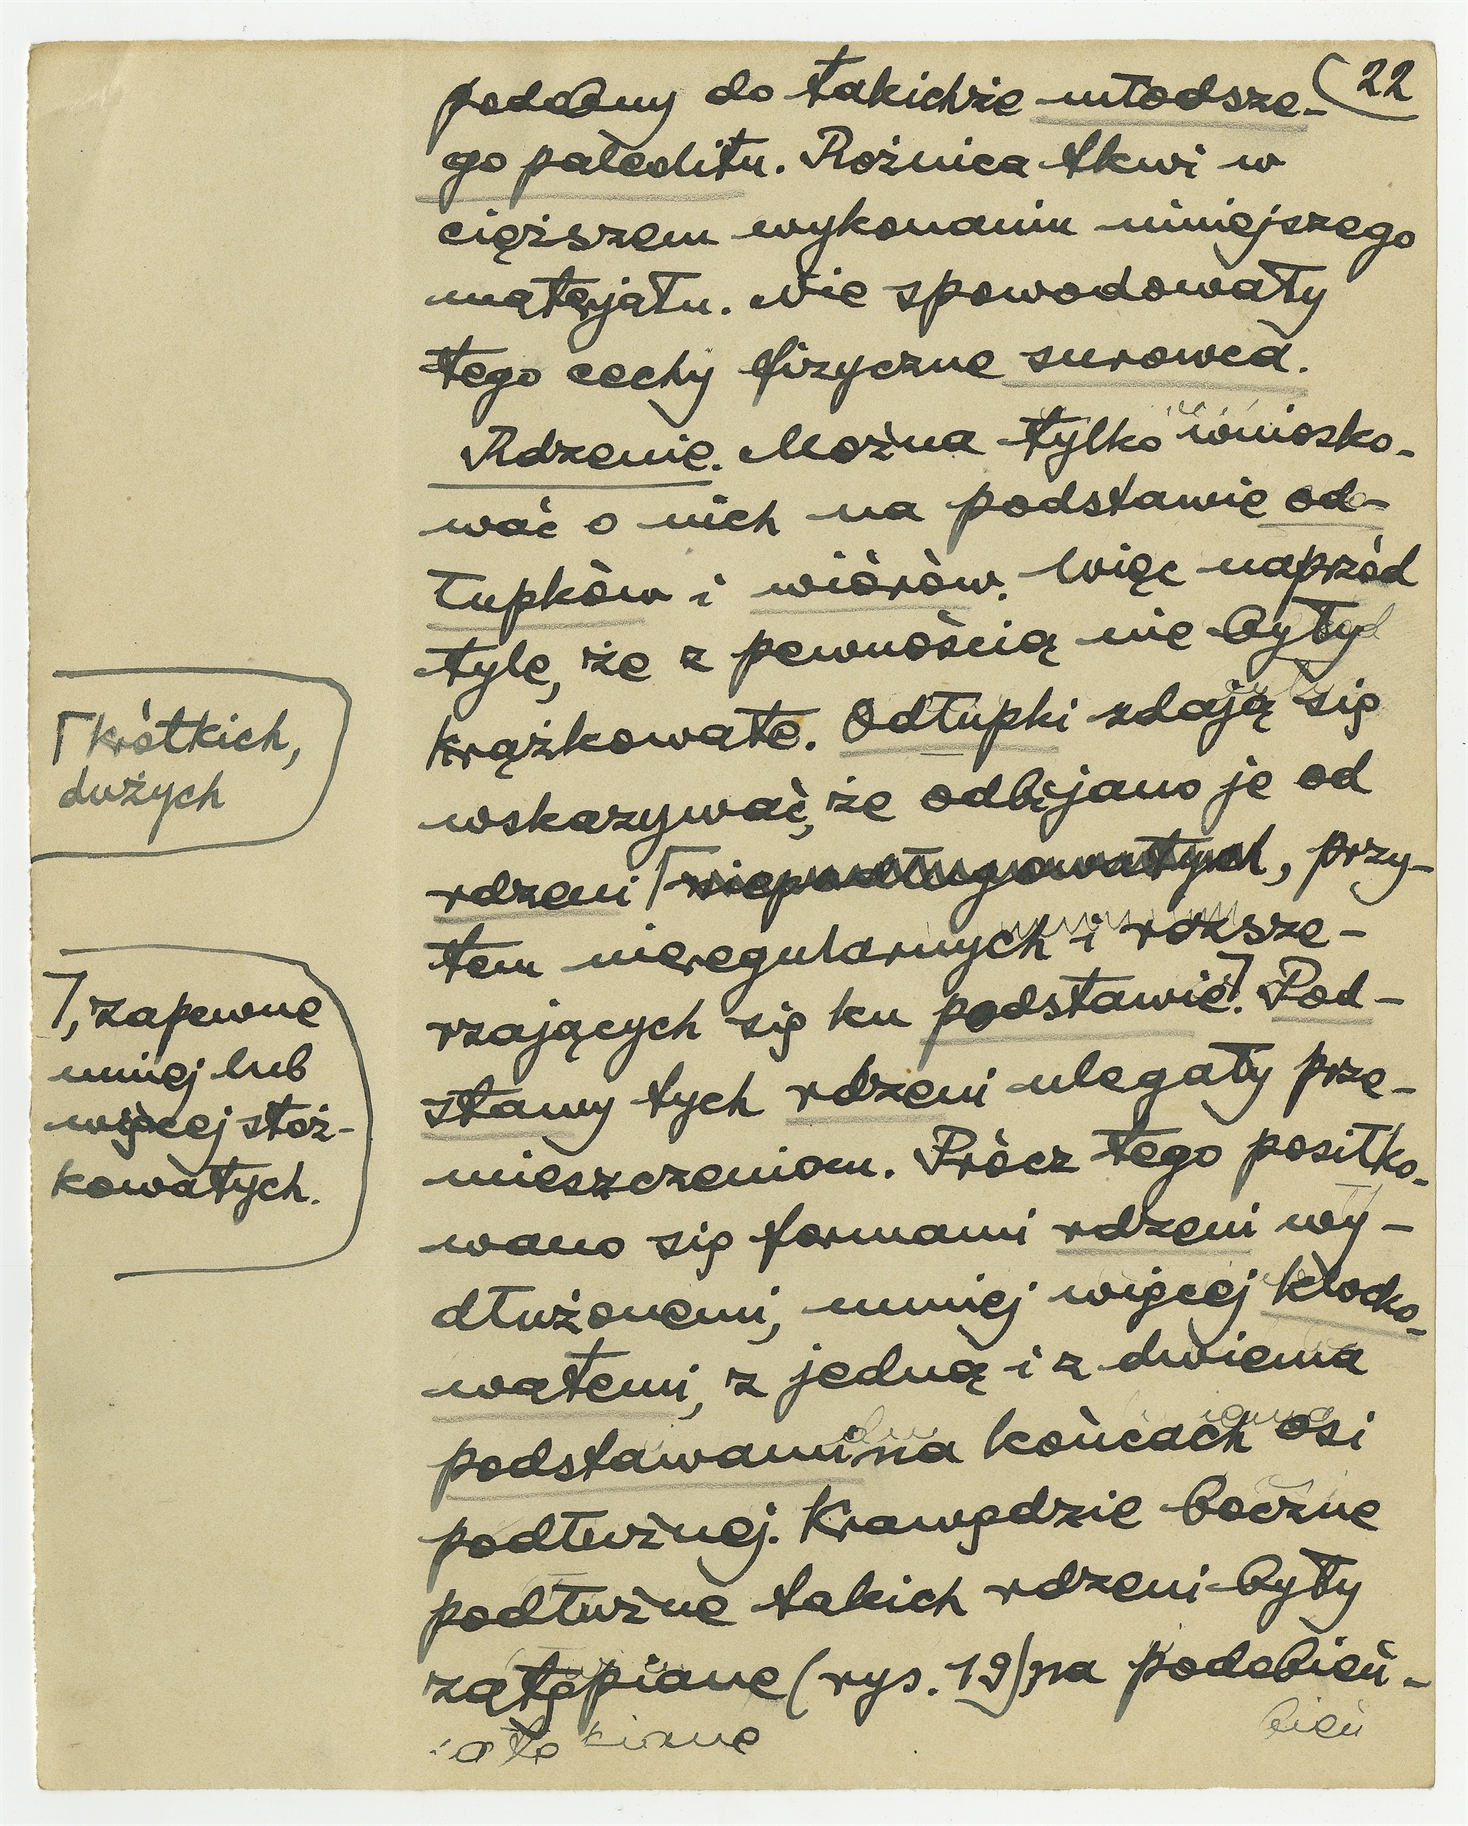 22
podobny do takichże młodsze-
go paleolitu. Różnica tkwi w
cięższem wykonaniu niniejszego
materjału. Nie spowodowały
tego cechy fizyczne surowca.
Rdzenie. Można tylko wniosko-
wać o nich na podstawie od-
łupków i wiórów. Więc naprzód
tyle, że z pewnością nie były
krążkowate. Odłupki zdają się
wskazywać, że odbijano je od
rdzeni ⌈, przy-
tem nieregularnych i rozsze-
rzających się ku podstawie⌉. Pod-
stawy tych rdzeni ulegały prze-
mieszczeniom. Prócz tego posiłko-
wano się formami rdzeni wy-
dłużonemi, mniej więcej klocko-
watemi, z jedną i z dwiema
podstawami na końcach osi
podłużnej. Krawędzie boczne
podłużne takich rdzeni były
zatępiane (rys. 19) na podobień-
bień
⌈krótkich,
dużych
⌉, zapewne
mniej lub
więcej stoż-
kowatych.